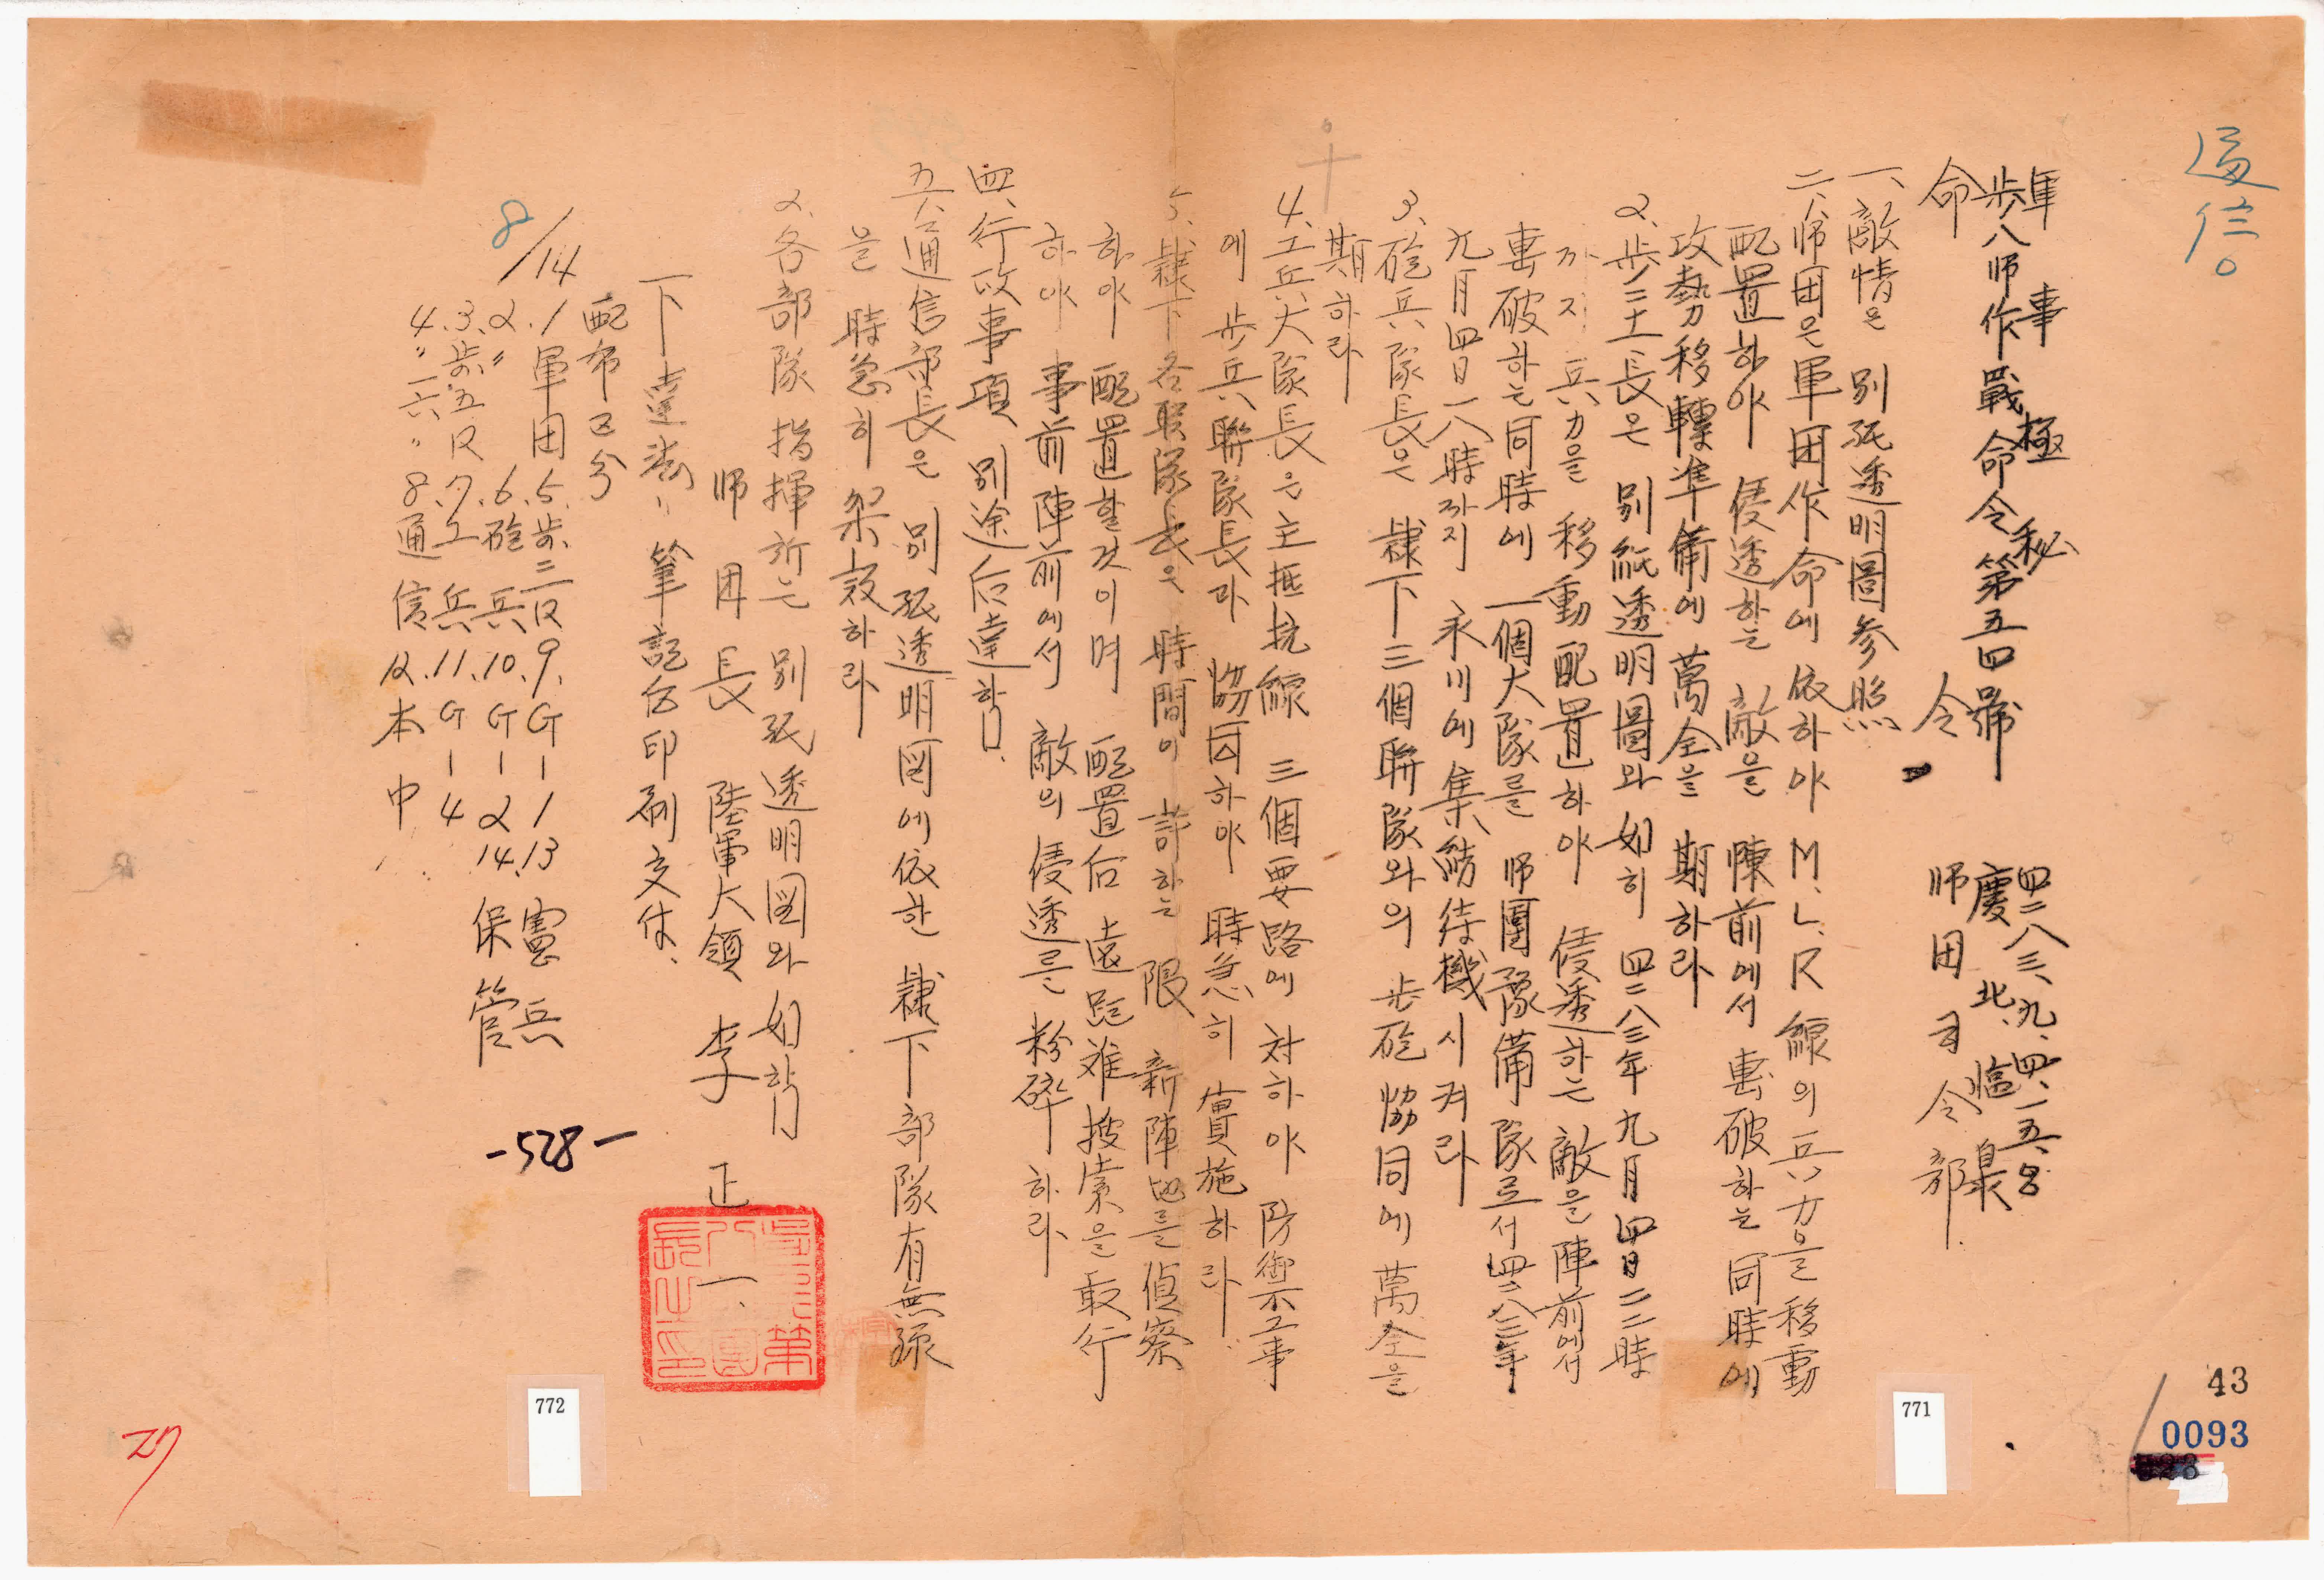 通信
軍事極秘
步八師作戰命令第五四號
命令
四二八三、九、四、一五、〇〇
慶北、臨泉
師団司令部
一、敵情은 別紙透明圖參照
二、師団은 軍団作命에 依하야 M.L.R 線의 兵力을 移動
配置하야 侵透하는 敵을 陣前에서 擊破하는 同時에
攻勢移轉準備에 萬全을 期하라
2. 步二十一長은 別紙透明圖와 如히 四二八三年 九月 四日 二二時
까지 兵力을 移動配置하야 侵透하는 敵을 陣前에서
擊破하는 同時에 一個大隊를 師團豫備隊로서 四二八三年
九月四日 一八時까지 永川에 集結待機 시켜라
3. 砲兵隊長은 隷下 三個聯隊와의 步砲 協同에 萬全을
期하라
4. 工兵大隊長은 主抵抗線 三個要路에 対하야 防禦工事
에 步兵聯隊長과 協同하야 時急히 實施하라.
5. 隷下 各聯隊長은 時間이 許하는 限 新陣地를 偵察
하야 配置할것이며 配置后 遠距離搜索을 敢行
하야 事前陣前에서 敵의 侵透를 粉碎하라
四、行政事項 別途后達함.
五、1. 通信部長은 別紙透明図에 依한 隷下部隊有無線
을 時急히 架設하라
2. 各部隊 指揮所는 別紙透明図와 如함
師団長 陸軍大領 李正一
下達法: 筆記后印刷交付、
配布区分
8/14
1 軍団 5. 步二R 9. G-1 13 憲兵
2. 〃 6. 砲兵 10. G-2 14. 保管
3. 步五R 7. 工兵 11. G-4
4. 〃 一六 〃 8. 通信 12. 本中
-528-
772
771
43
0093
27